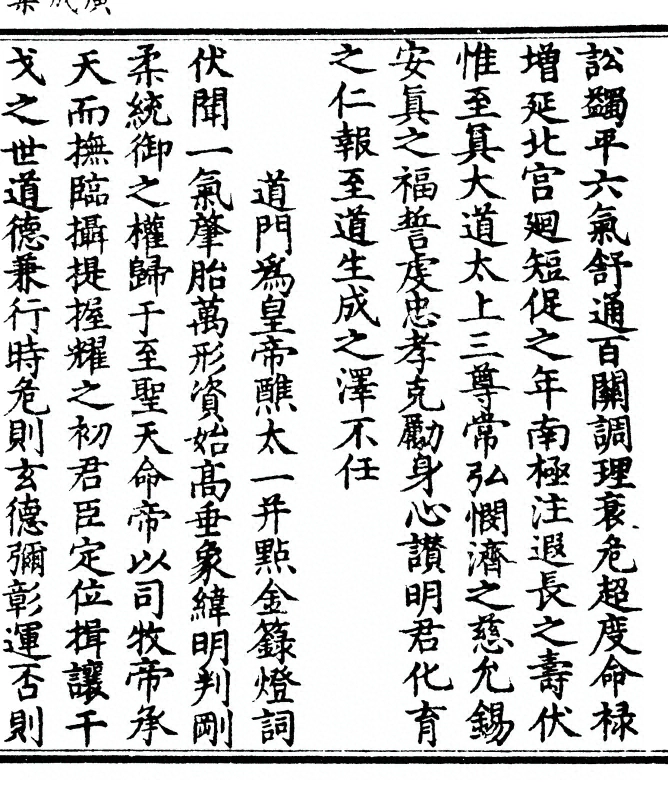 訟蠲平六氣舒通百關調理衰危超度命祿
增延北宮廻短促之年南極注遐長之壽伏
惟至眞大道太上三尊常弘憫濟之慈允錫
安眞之福誓虔忠孝克勵身心讚明君化育
之仁報至道生成之澤不任
道門爲皇帝醮太一并點金籙燈詞
伏聞一氣肇胎萬形資始高垂象緯明判剛
柔統御之權歸于至聖天命帝以司牧帝承
天而撫臨攝提握耀之初君臣定位揖讓干
戈之世道德兼行時危則玄德彌彰運否則